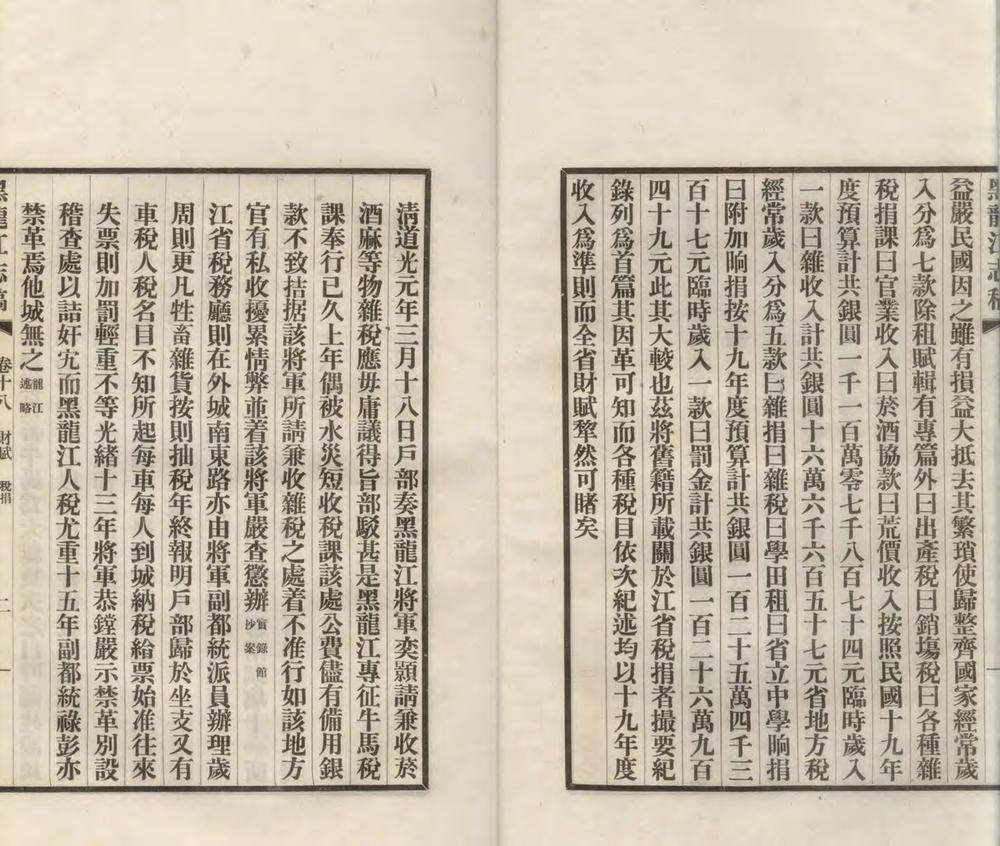 黑龍江志稿
益嚴民國因之雖有損益大抵去其繁瑣使歸整齊國家經常歲
入分爲七款除租賦輯有專篇外曰出產稅曰銷塲稅曰各種雜
稅捐課曰官業收入曰菸酒協款曰荒價收入按照民國十九年
度預算計共銀圓一千一百萬零七千八百七十四元臨時歲入
一款曰雜收入計共銀圓十六萬六千六百五十七元省地方稅
經常歲入分爲五款曰雜捐曰雜稅曰學田租曰省立中學晌捐
曰附加晌捐按十九年度預算計共銀圓一百二十五萬四千三
百十七元臨時歲入一款曰罰金計共銀圓一百二十六萬九百
四十九元此其大較也茲將舊籍所載關於江省稅捐者撮要紀
錄列爲首篇其因革可知而各種稅目依次紀述均以十九年度
收入爲準則而全省財賦犂然可睹矣
清道光元年三月十八日戶部奏黑龍江將軍奕顥請兼收菸
酒麻等物雜稅應毋庸議得旨部駁甚是黑龍江專征牛馬稅
課奉行已久上年偶被水災短收稅課該處公費儘有備用銀
款不致拮据該將軍所請兼收雜稅之處着不准行如該地方
官有私收擾累情弊並着該將軍嚴查懲辦實錄館抄案
江省稅務廳則在外城南東路亦由將軍副都統派員辦理歲
周則更凡牲畜雜貨按則抽稅年終報明戶部歸於坐支又有
車稅人稅名目不知所起每車每人到城納稅給票始准往來
失票則加罰輕重不等光緒十三年將軍恭鏜嚴示禁革別設
稽查處以詰奸宄而黑龍江人稅尤重十五年副都統祿彭亦
禁革焉他城無之龍江述略
黑龍江志稿 卷十八 財賦 稅捐 二